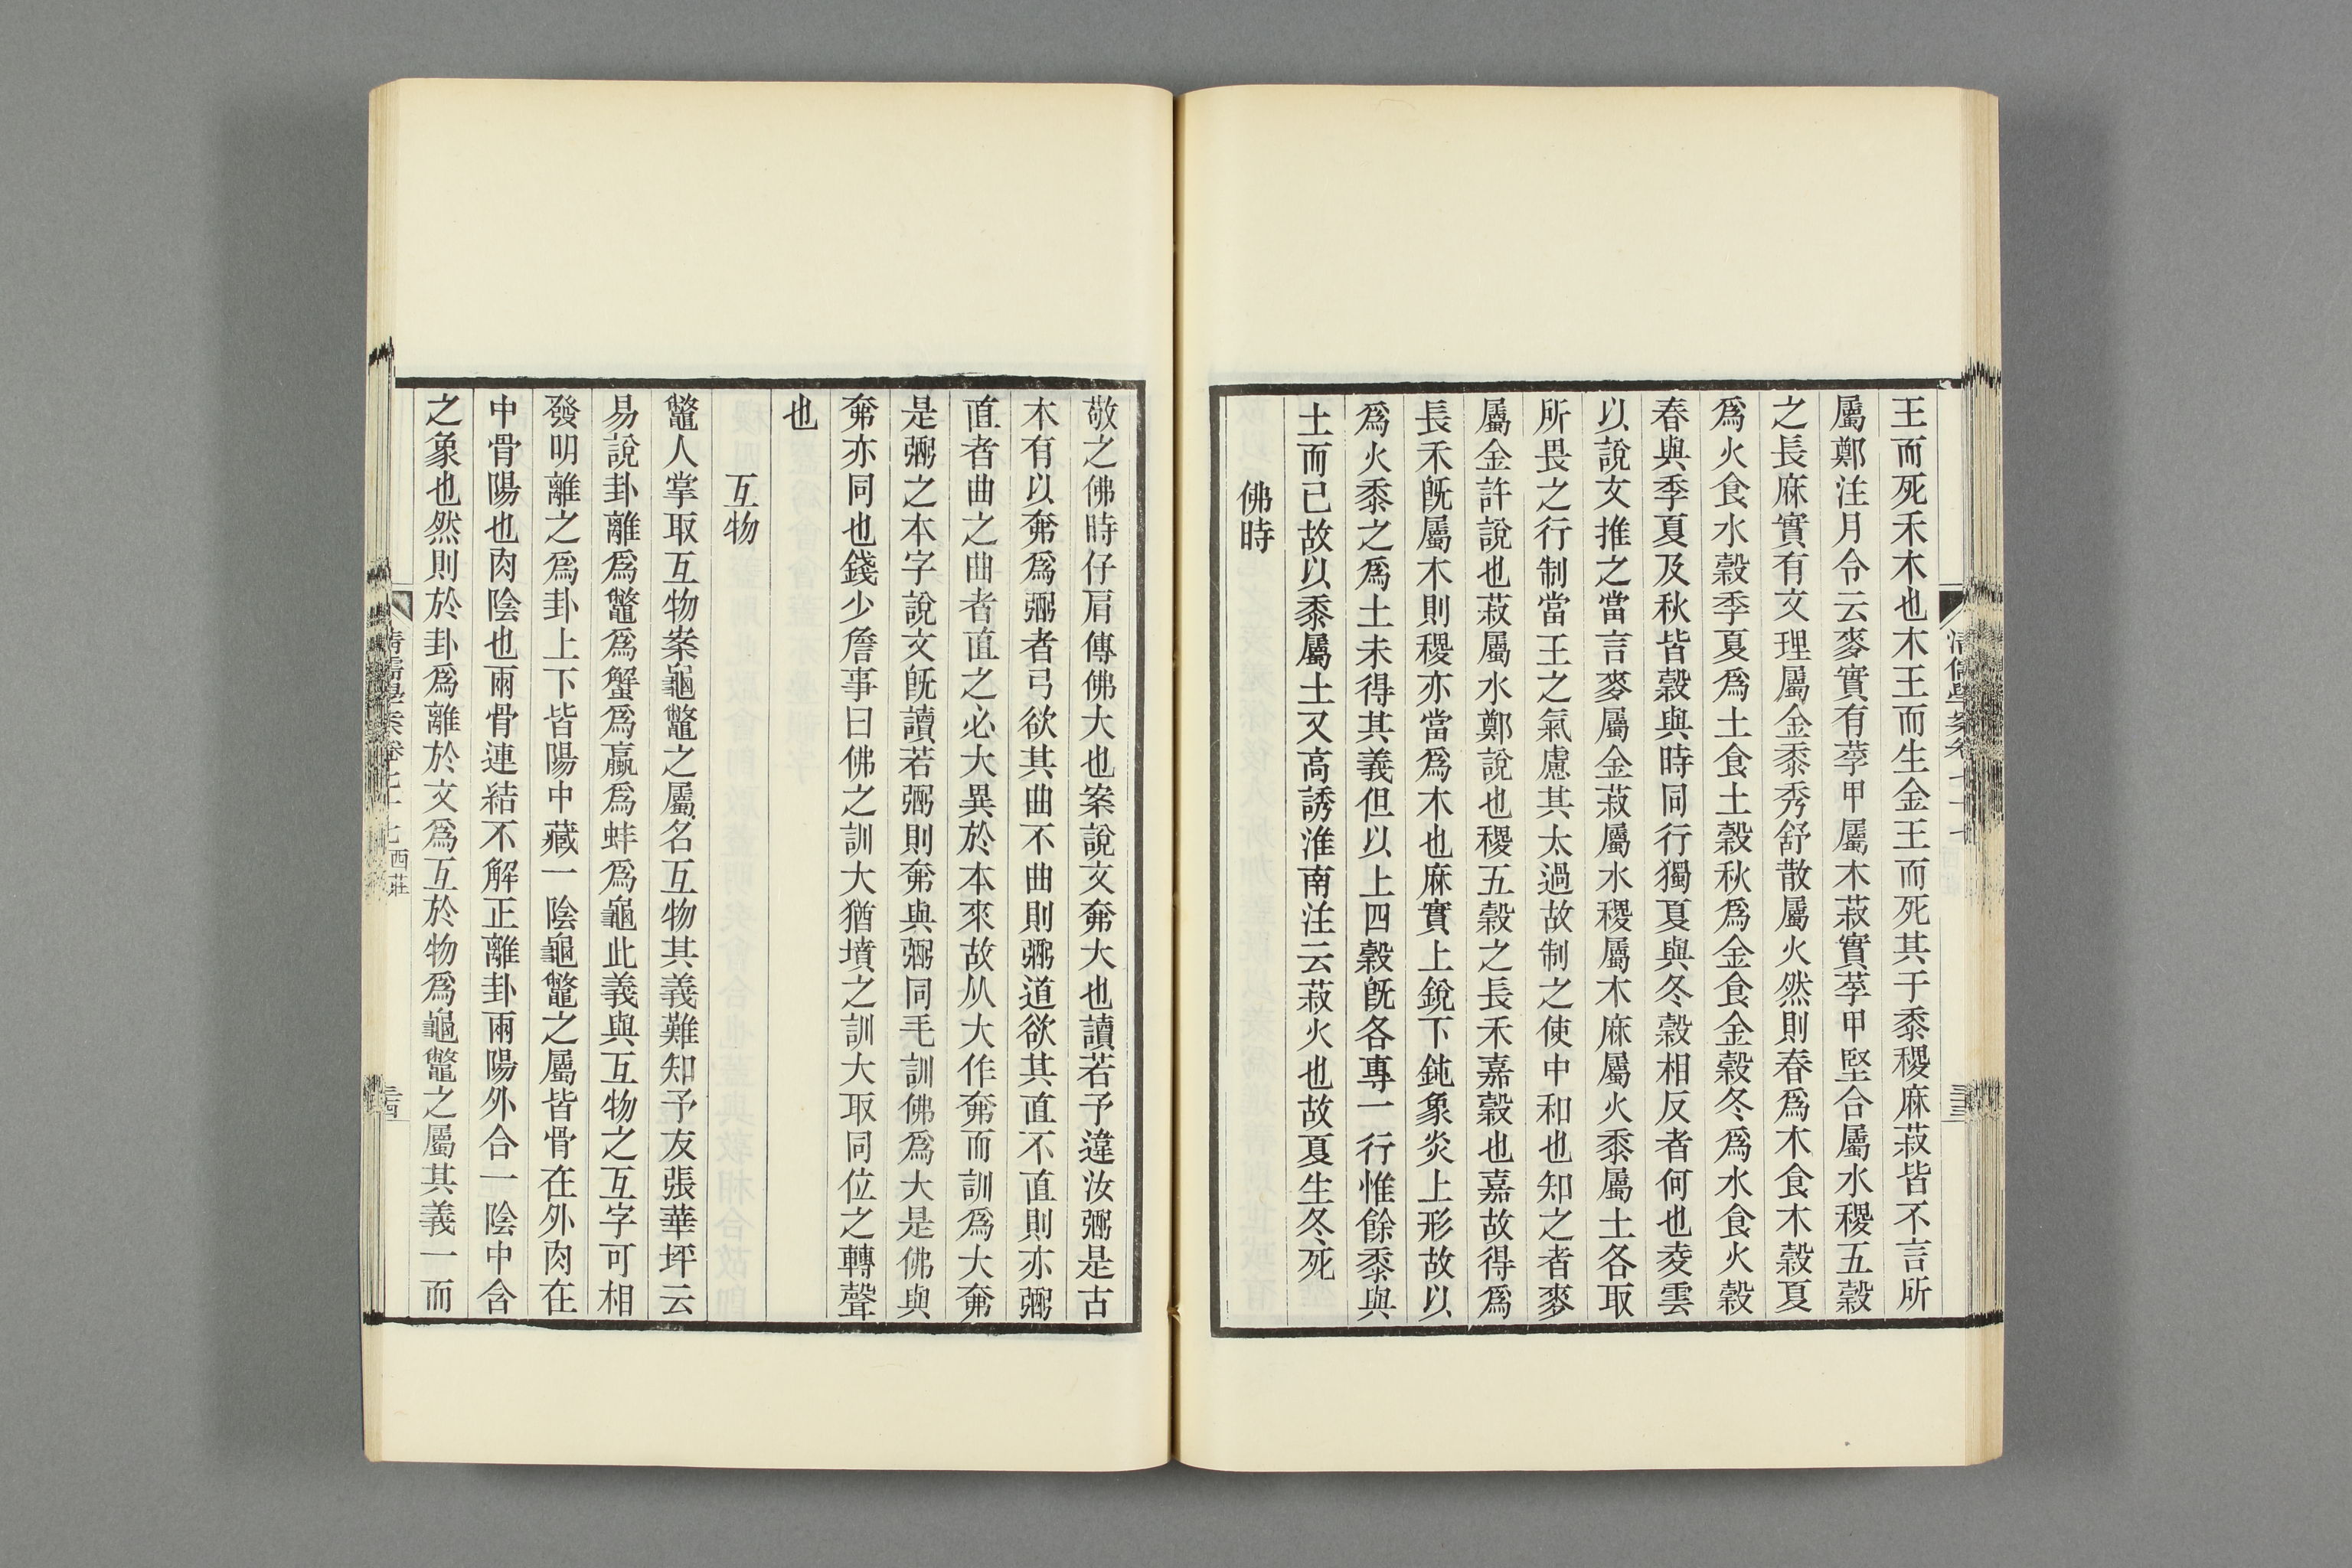 王而死禾木也木王而生金王而死其于黍稷麻菽皆不言所
屬鄭注月令云麥實有莩甲屬木菽實莩甲堅合屬水稷五穀
之長麻實有文理屬金黍秀舒散屬火然則春爲木食木穀夏
爲火食水穀季夏爲土食土穀秋爲金食金穀冬爲水食火穀
春與季夏及秋皆穀與時同行獨夏與冬穀相反者何也夌雲
以說文推之當言麥屬金菽屬水稷屬木麻屬火黍屬土各取
所畏之行制當王之氣慮其太過故制之使中和也知之者麥
屬金許說也菽屬水鄭說也稷五穀之長禾嘉穀也嘉故得爲
長禾旣屬木則稷亦當爲木也麻實上銳下鈍象炎上形故以
爲火黍之爲土未得其義但以上四穀旣各專一行惟餘黍與
土而已故以黍屬土又高誘淮南注云菽火也故夏生冬死
佛時
敬之佛時仔肩傳佛大也案說文奟大也讀若予違汝弼是古
木有以奟爲弼者弓欲其曲不曲則弼道欲其直不直則亦弼
直者曲之曲者直之必大異於本來故从大作奟而訓爲大奟
是弼之本字說文旣讀若弼則奟與弼同毛訓佛爲大是佛與
奟亦同也錢少詹事曰佛之訓大猶墳之訓大取同位之轉聲
也
互物
鼈人掌取互物案龜鼈之屬名互物其義難知予友張華坪云
易說卦離爲鼈爲蟹爲蠃爲蚌爲龜此義與互物之互字可相
發明離之爲卦上下皆陽中藏一陰龜鼈之屬皆骨在外肉在
中骨陽也肉陰也兩骨連結不解正離卦兩陽外合一陰中含
之象也然則於卦爲離於文爲互於物爲龜鼈之屬其義一而
清儒學案卷七十七 西莊
三十四